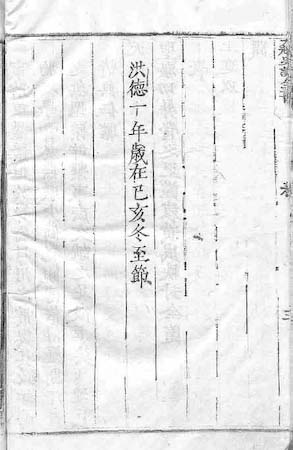 洪德十年歲在己亥冬至節
三